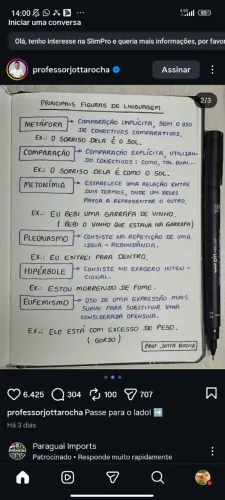 14:00
Iniciar uma conversa
Olá, tenho interesse na SlimPro e queria mais informações, por favo
professorjottarocha
Assinar
2/3
PRINCIPAIS FIGURAS DE LINGUAGEM
METÁFORA → COMPARAÇÃO IMPLÍCITA, SEM O USO
DE CONECTIVOS COMPARATIVOS.
EX.: O SORRISO DELA É O SOL.
COMPARAÇÃO → COMPARAÇÃO EXPLÍCITA, UTILIZAN-
DO CONECTIVOS: COMO, TAL QUAL...
EX.: O SORRISO DELA É COMO O SOL.
METONÍMIA → ESTABELECE UMA RELAÇÃO ENTRE
DOIS TERMOS, ONDE UM DELES
PASSA A REPRESENTAR O OUTRO.
EX.: EU BEBI UMA GARRAFA DE VINHO.
( BEBI O VINHO QUE ESTAVA NA GARRAFA)
PLEONASMO → CONSISTE NA REPETIÇÃO DE UMA
IDEIA - REDUNDÂNCIA.
EX.: EU ENTREI PARA DENTRO.
HIPÉRBOLE → CONSISTE NO EXAGERO INTEN-
CIONAL.
EX.: ESTOU MORRENDO DE FOME.
EUFEMISMO → USO DE UMA EXPRESSÃO MAIS
SUAVE PARA SUBSTITUIR UMA
CONSIDERADA OFENSIVA.
EX.: ELE ESTÁ COM EXCESSO DE PESO.
( GORDO )
PROF. JOTTA ROCHA
6.425 304 100 707
professorjottarocha Passe para o lado! ➡️
Há 3 dias
Paraguai Imports
Patrocinado • Responde muito rapidamente